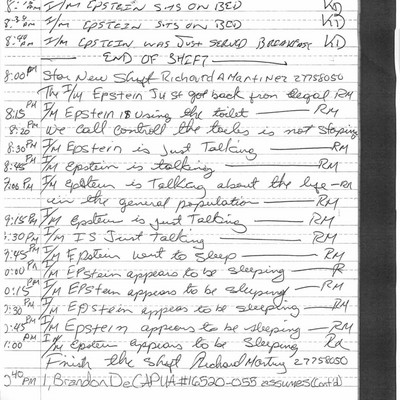 8: AM I/M EPSTEIN SITS ON BED KD
8:30 AM I/M EPSTEIN SITS ON BED KD
8:40 AM I/M EPSTEIN WAS JUST SERVED BREAKFAST KD
END OF SHIFT
8:00 PM Star New Sheft Richard A Martinez 27758050
The I/M Epstein Just got back from legal RM
8:15 PM I/M Epstein is using the toilet RM
8:20 PM We call controll the toiles is not stoping
8:30 PM I/M Epstein is Just Talking RM
8:45 PM I/M Epstein is talking RM
9:00 PM I/M epstein is Talking about the life RM
in the general population RM
9:15 PM I/M Epstein is just Talking RM
:30 PM I/M IS Just Talking RM
9:45 PM I/M Epstein went to sleep RM
0:00 PM I/M EPStein appears to be sleeping R
0:15 PM I/M EPStein appears to be sleeping RM
:30 PM I/M EPStein appeas to be sleeping RM
:45 PM I/M Epstein appears to be sleeping RM
1:00 PM I/M Epstein appears to be sleeping
Finish the Sheft Richard 27758050
:40 PM I, Brandon DeCAPUA #16520-055 assumes (Cont'd)